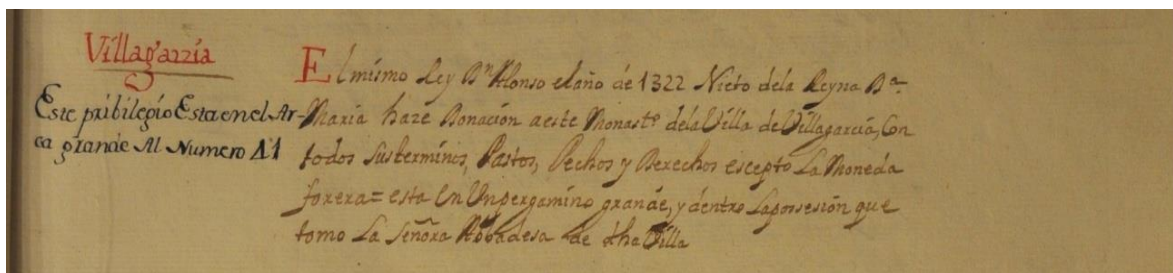 Villagarzia
Este pribilegio Esta en el Ar-
ca grande Al Numero 41
El mismo Rey Dn Alonso el año de 1322 Nieto dela Reyna Da.
Maria haze Donacion a este Monasto dela Villa de Villagarcia, Con
todos sus terminos, Pastos, Pechos y Derechos escepto La Moneda
forera = esta En Un pergamino grande, y dentro La possesion que
tomo La Señora Abbadesa de dha Villa